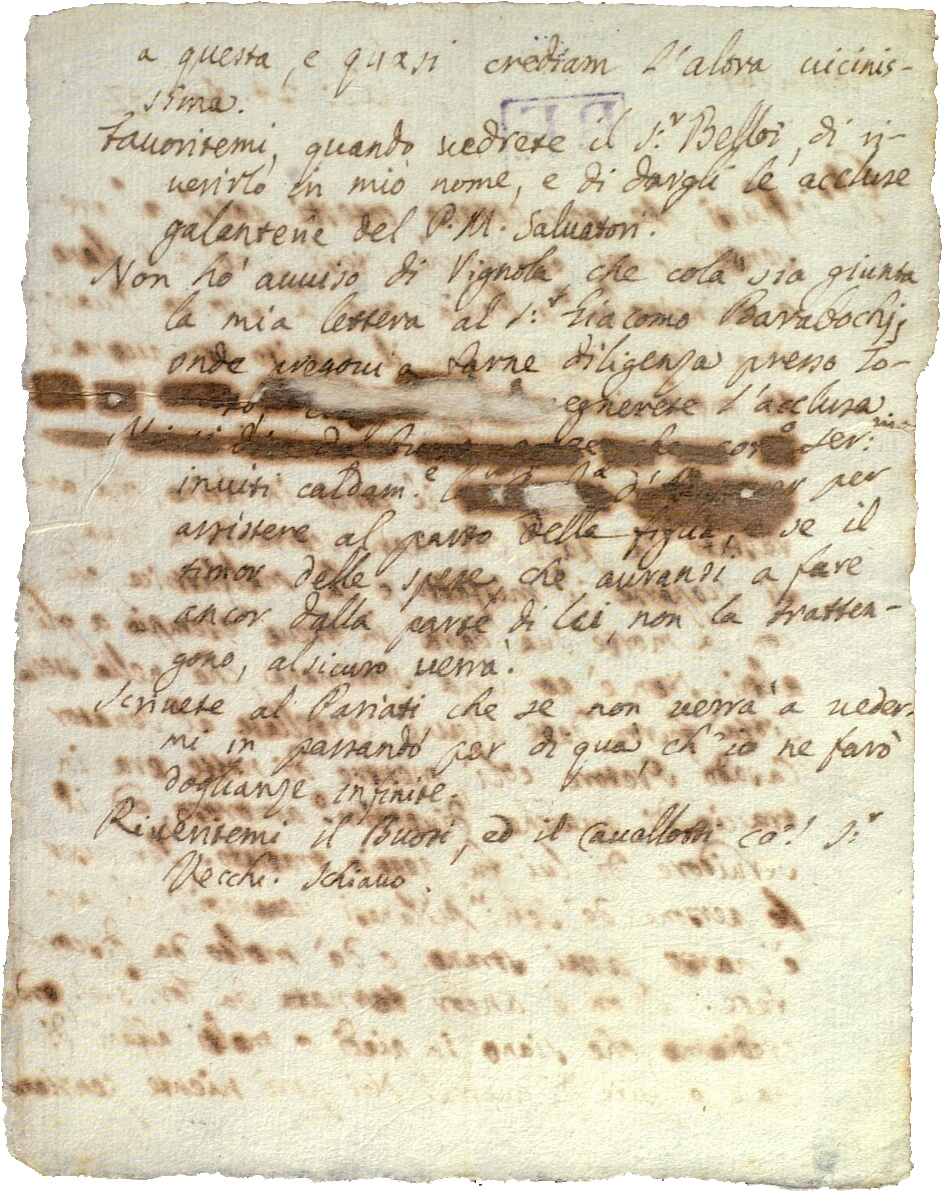 a questa, e quasi crediam l'alora vicinis-
sima.
Favoritemi, quando vedrete il S.r Belloi, di ri-
verirlo in mio nome, e di dargli le accluse
galanterie del P. M. Salvatori.
Non hò avviso di Vignola che colà sia giunta
la mia lettera al S.r Giacomo Barabochi,
onde pregovi a farne diligenza presso lo-
l'acclusa
Ser.mo
inviti caldam.e per
assistere al parto della figlia, se il
timor delle spese che avransi a fare
ancor dalla parte di lei non la tratten-
gono, al sicuro verrà.
Scrivete al Pariati che se non verrà à veder-
mi in passando per di quà ch'io ne farò
doglianze infinite.
Riveritemi il Buosi, ed il Cavallotti co'l S.r
Vecchi. Schiavo.